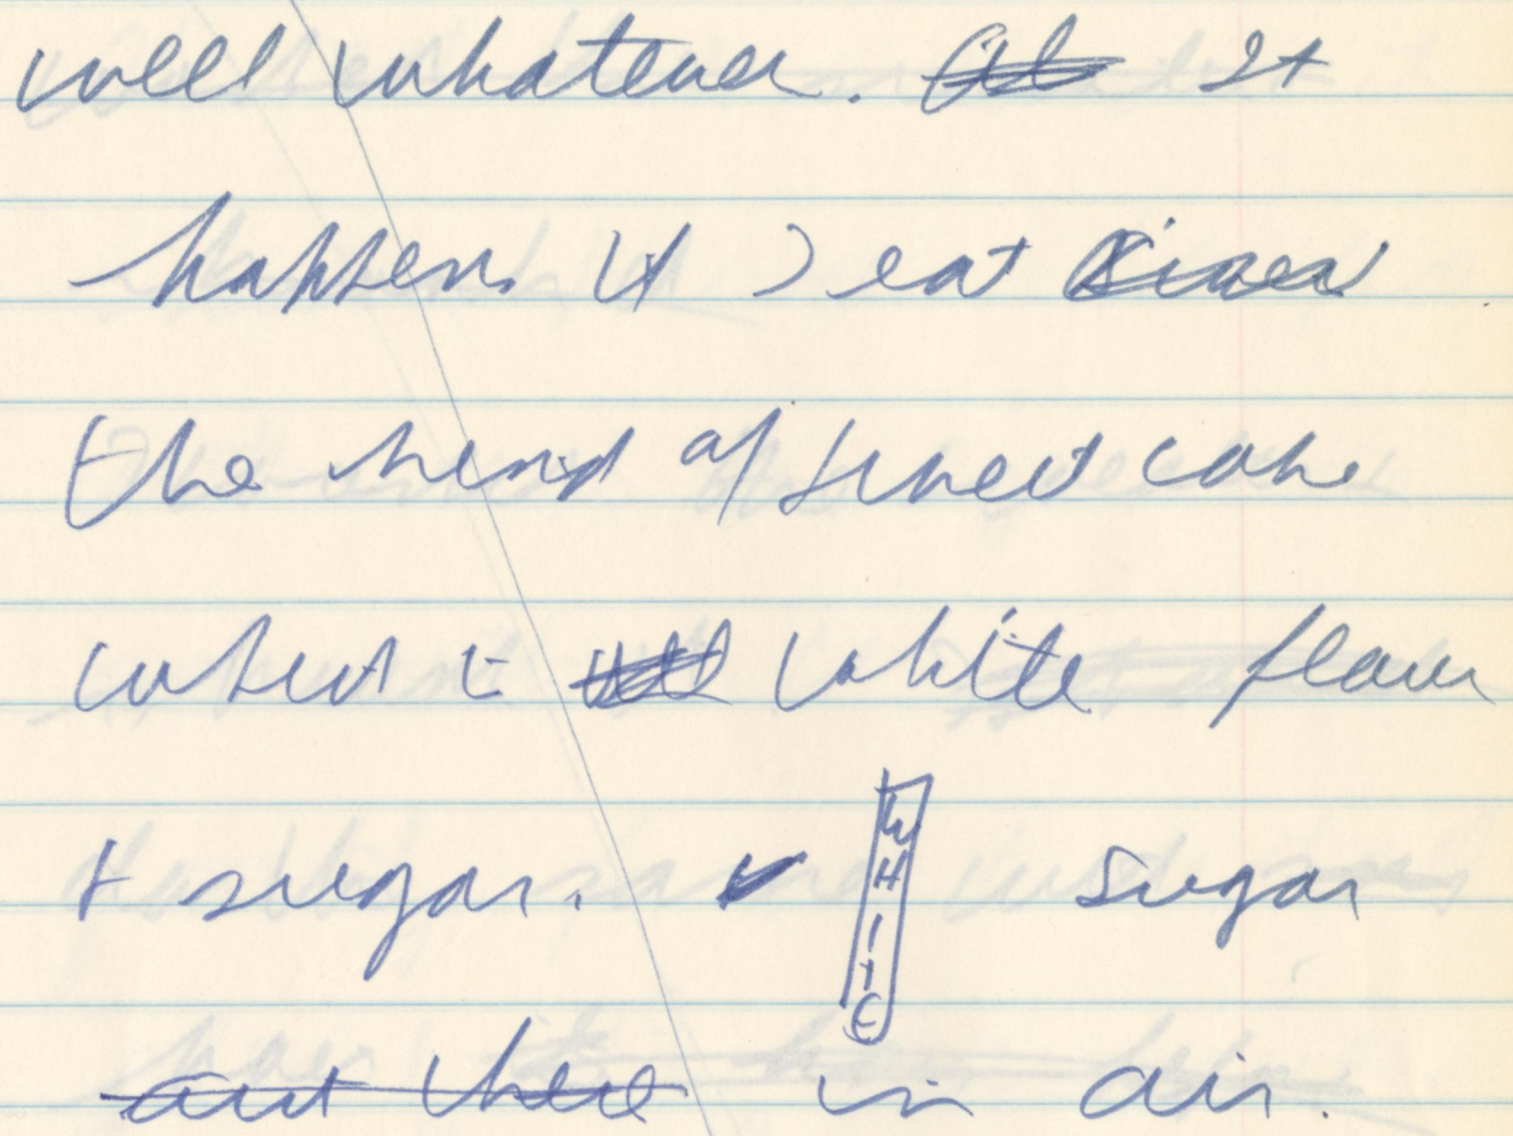 well whatever. It
happens if I eat
the kind of sweet cake
what is white flour
+ sugar. WHITE sugar
in air.